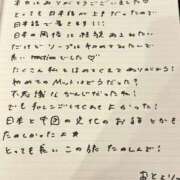 本日はありがとうございました♡
とっても日本語が上手だったので
日本語で書きます!!
日本の風俗は経験あるみたい
だけどソープは初めてだったみたいで
良い reaction でした♡
たくさん私とほめてくれてありがとう!
初めての Mat はどうだった?
不思議なかんじだったね!
でもチャレンジしてくれて良かった!
日本と中国の文化のお話とか
たのしかったよ★
とっても長いこの後たのしんで!